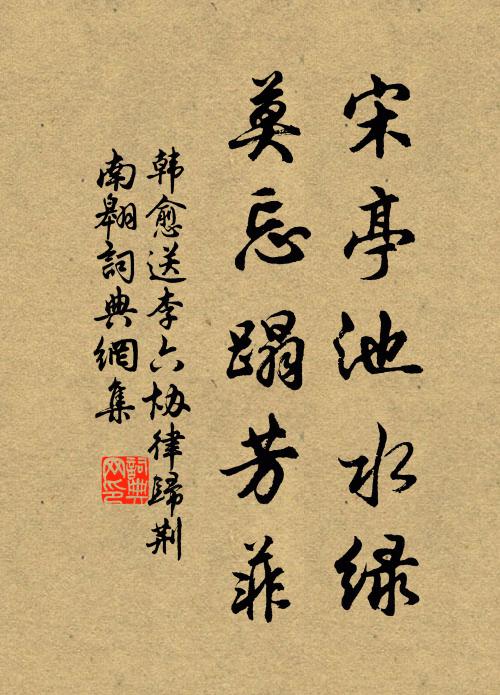 宋亭池水绿
莫忘蹋芳菲
韩愈送李六协律歸荆
南翱詞典網集
詞典网印